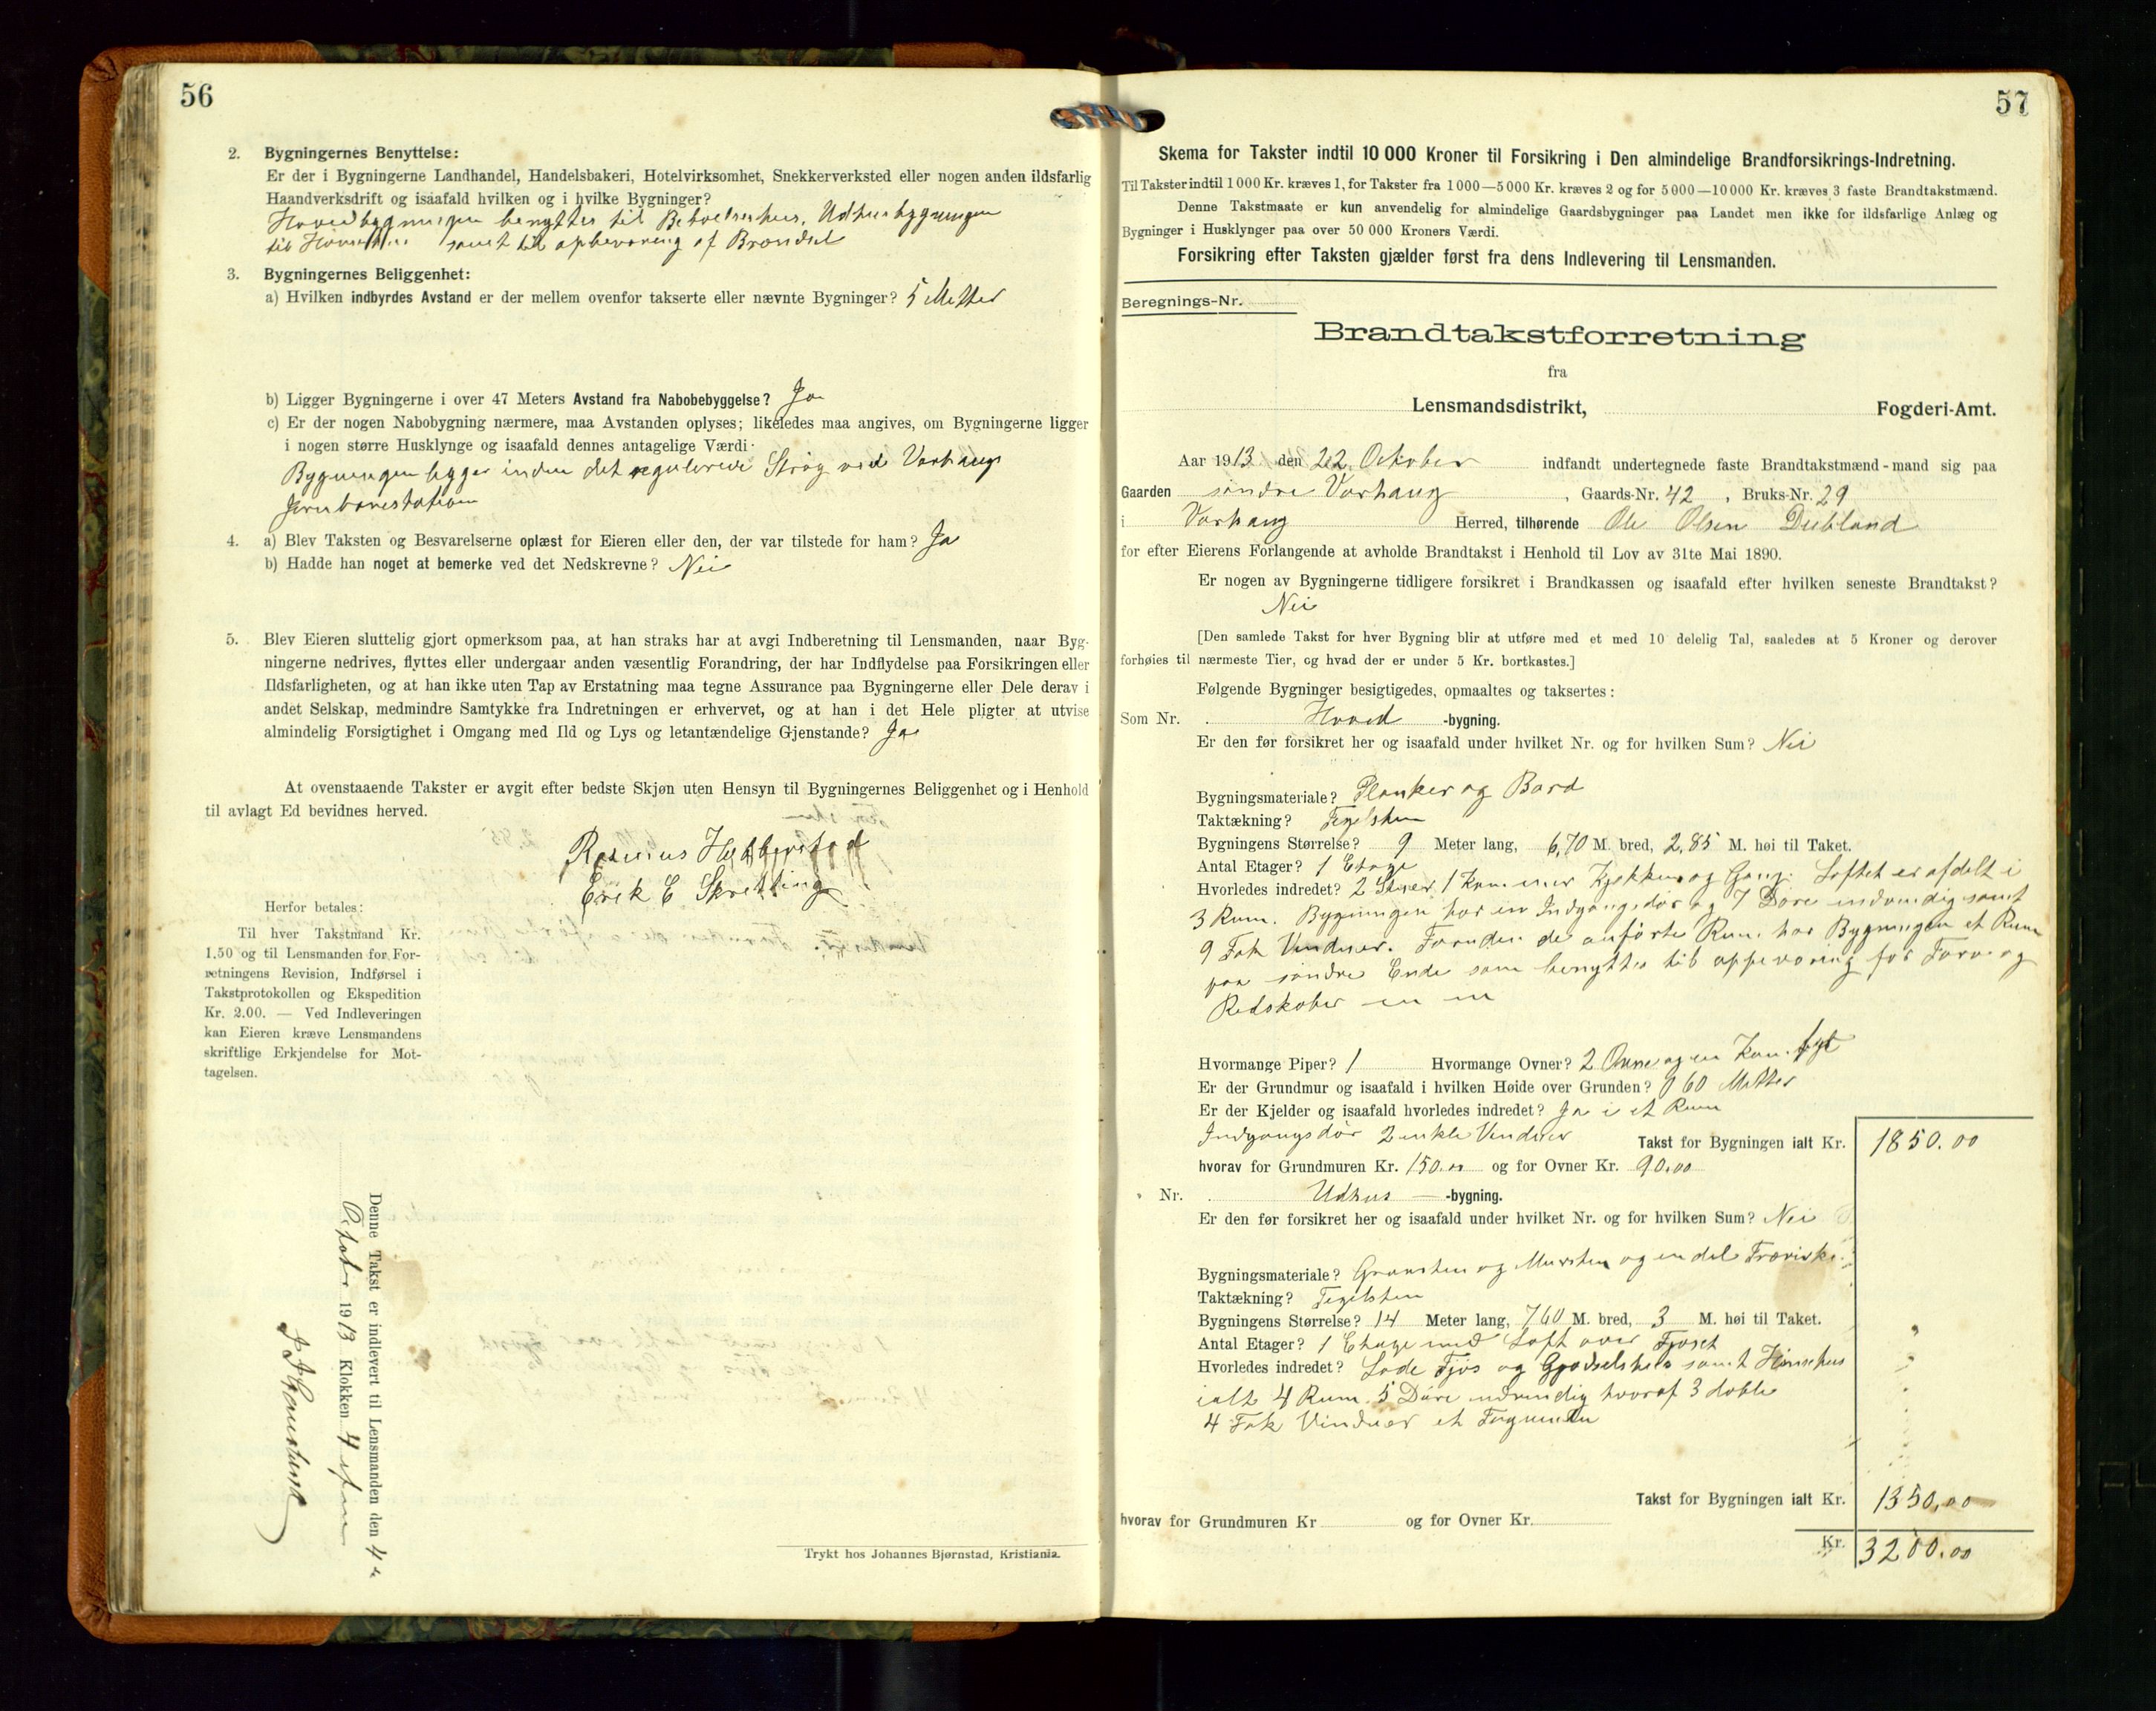 56
2. Bygningernes Benyttelse:
Er der i Bygningerne Landhandel, Handelsbakeri, Hotelvirksomhet, Snekkerverksted eller nogen anden ildsfarlig
Haandverksdrift og isaafald hvilken og i hvilke Bygninger?
Hovedbygningen benyttes til Beboelseshus, Udhusbygningen
til samt til opbevaring af Brændsel
3. Bygningernes Beliggenhet:
a) Hvilken indbyrdes Avstand er der mellem ovenfor takserte eller nævnte Bygninger? 5 Metter
b) Ligger Bygningerne i over 47 Meters Avstand fra Nabobebyggelse? Ja
c) Er der nogen Nabobygning nærmere, maa Avstanden oplyses; likeledes maa angives, om Bygningerne ligger
i nogen større Husklynge og isaafald dennes antagelige Værdi.
Bygningen ligger inden det regulerede Strøg ved Varhaug
Jernbanestation
4. a) Blev Taksten og Besvarelserne oplæst for Eieren eller den, der var tilstede for ham? Ja
b) Hadde han noget at bemerke ved det Nedskrevne? Nei
5. Blev Eieren sluttelig gjort opmerksom paa, at han straks har at avgi Indberetning til Lensmanden, naar Byg-
ningerne nedrives, flyttes eller undergaar anden væsentlig Forandring, der har Indflydelse paa Forsikringen eller
Ildsfarligheten, og at han ikke uten Tap av Erstatning maa tegne Assurance paa Bygningerne eller Dele derav i
andet Selskap, medmindre Samtykke fra Indretningen er erhvervet, og at han i det Hele pligter at utvise
almindelig Forsigtighet i Omgang med Ild og Lys og letantændelige Gjenstande? Ja
At ovenstaaende Takster er avgit efter bedste Skjøn uten Hensyn til Bygningernes Beliggenhet og i Henhold
til avlagt Ed bevidnes herved.
Rasmus Hobberstad
Erik E Skretting
Herfor betales:
Til hver Takstmand Kr.
1.50 og til Lensmanden for For-
retningens Revision, Indførsel i
Takstprotokollen og Ekspedition
Kr. 2.00. — Ved Indleveringen
kan Eieren kræve Lensmandens
skriftlige Erkjendelse for Mot-
tagelsen.
Denne Takst er indlevert til Lensmanden den 4de
October 1913 Klokken 4 efm
Trykt hos Johannes Bjørnstad, Kristiania.
57
Skema for Takster indtil 10 000 Kroner til Forsikring i Den almindelige Brandforsikrings-Indretning.
Til Takster indtil 1000 Kr. kræves 1, for Takster fra 1000—5000 Kr. kræves 2 og for 5000—10000 Kr. kræves 3 faste Brandtakstmænd.
Denne Takstmaate er kun anvendelig for almindelige Gaardsbygninger paa Landet men ikke for ildsfarlige Anlæg og
Bygninger i Husklynger paa over 50 000 Kroners Værdi.
Forsikring efter Taksten gjælder først fra dens Indlevering til Lensmanden.
Beregnings-Nr.
Brandtakstforretning
fra
Lensmandsdistrikt, Fogderi-Amt.
Aar 1913 den 22. October indfandt undertegnede faste Brandtakstmænd-mand sig paa
Gaarden søndre Varhaug, Gaards-Nr. 42, Bruks-Nr. 29
i Varhaug Herred, tilhørende Ole Olsen Dubland
for efter Eierens Forlangende at avholde Brandtakst i Henhold til Lov av 31te Mai 1890.
Er nogen av Bygningerne tidligere forsikret i Brandkassen og isaafald efter hvilken seneste Brandtakst?
Nei
[Den samlede Takst for hver Bygning blir at utføre med et med 10 delelig Tal, saaledes at 5 Kroner og derover
forhøies til nærmeste Tier, og hvad der er under 5 Kr. bortkastes.]
Følgende Bygninger besigtigedes, opmaaltes og taksertes:
Som Nr. Hoved -bygning.
Er den før forsikret her og isaafald under hvilket Nr. og for hvilken Sum? Nei
Bygningsmateriale? Planker og Bord
Taktækning? Teglsten
Bygningens Størrelse? 9 Meter lang, 6,70 M. bred, 2,85 M. høi til Taket.
Antal Etager? 1 Etage
Hvorledes indredet? 2 Stuer 1 Kammer Kjøkken og Gang. Loftet er afdelt i
3 Rum. Bygningen har en Indgangsdør og 7 Døre indvendig samt
9 Fak Vinduer. Foruden de anførte Rum har Bygningen et Rum
paa søndre Ende som benyttes til oppevaring for Torv og
Redskaber
Hvormange Piper? 1 Hvormange Ovner? 2 Ovne og en Komfyt
Er der Grundmur og isaafald i hvilken Høide over Grunden? 0 60 Metter
Er der Kjelder og isaafald hvorledes indredet? Ja i et Rum
Indgangsdør 2 enkle Vinduer Takst for Bygningen ialt Kr. 1850.00
hvorav for Grundmuren Kr. 150.00 og for Ovner Kr. 90.00
Nr. Udhus -bygning.
Er den før forsikret her og isaafald under hvilket Nr. og for hvilken Sum? Nei
Bygningsmateriale? Graasten og Mursten og en del Træviske
Taktækning? Tegelsten
Bygningens Størrelse? 14 Meter lang, 7 60 M. bred, 3 M. høi til Taket.
Antal Etager? 1 Etage med Loft over Fjøset
Hvorledes indredet? Lade Fjøs og Gjødselshus samt Hønsehus
ialt 4 Rum. 5 Døre udvendig hvoraf 3 doble
4 Fak Vinduer et
Takst for Bygningen ialt Kr. 1350,00
hvorav for Grundmuren Kr. og for Ovner Kr.
Kr. 3200.00